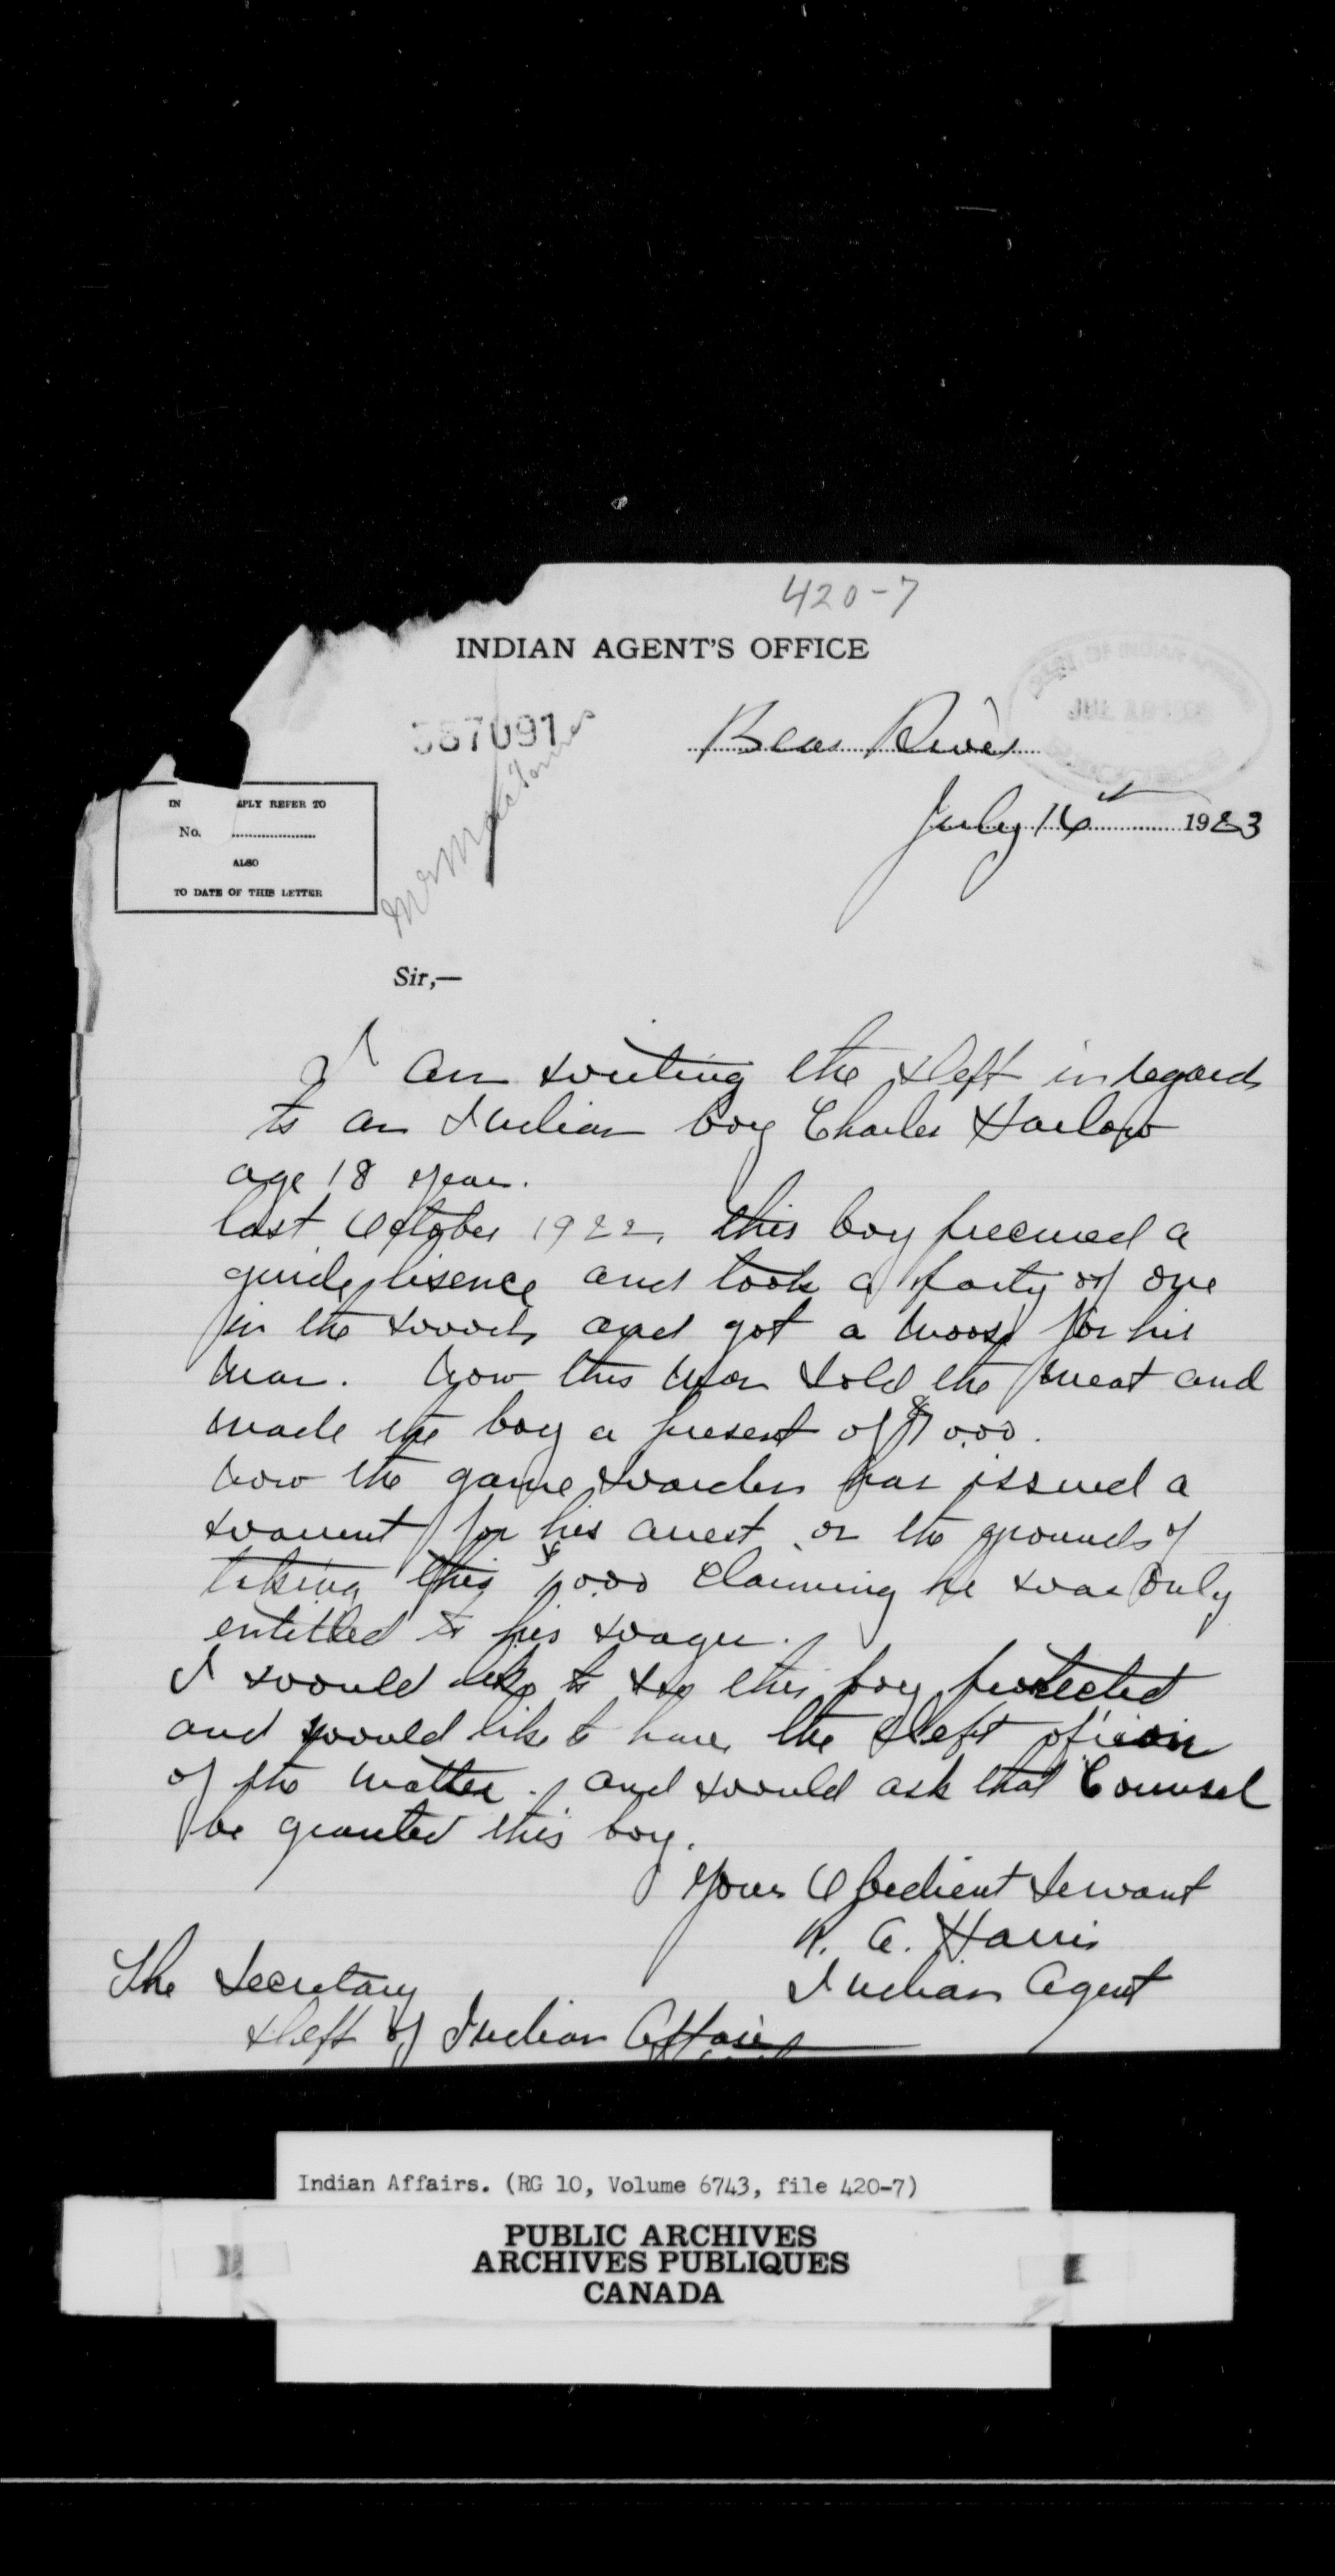 420-7
INDIAN AGENT'S OFFICE
DEPT. OF INDIAN AFFAIRS
JUL
567091
Bear River
July 16th 1923
IN REPLY REFER TO
No.
ALSO
TO DATE OF THIS LETTER
Mr M
Sir,—
I am writing the Dept in regards
to an Indian boy Charles Harlow
age 18 year.
last October 1922, this boy precured a
guide lisence and took a party of one
in the woods and got a moose for his
man. Now this man sold the meat and
made the boy a present of $10.00.
now the game warden has issued a
warrent for his arrest on the grounds of
taking this $10.00 claiming he was only
entitled to his wages.
I would like to see this boy protected
and would like to have the Dept opinion
of the matter. and would ask that Counsel
be granted this boy.
Your Obedient Servant
R. A. Harris
Indian Agent
The Secretary
Dept of Indian Affairs
Indian Affairs. (RG 10, Volume 6743, file 420-7)
PUBLIC ARCHIVES
ARCHIVES PUBLIQUES
CANADA